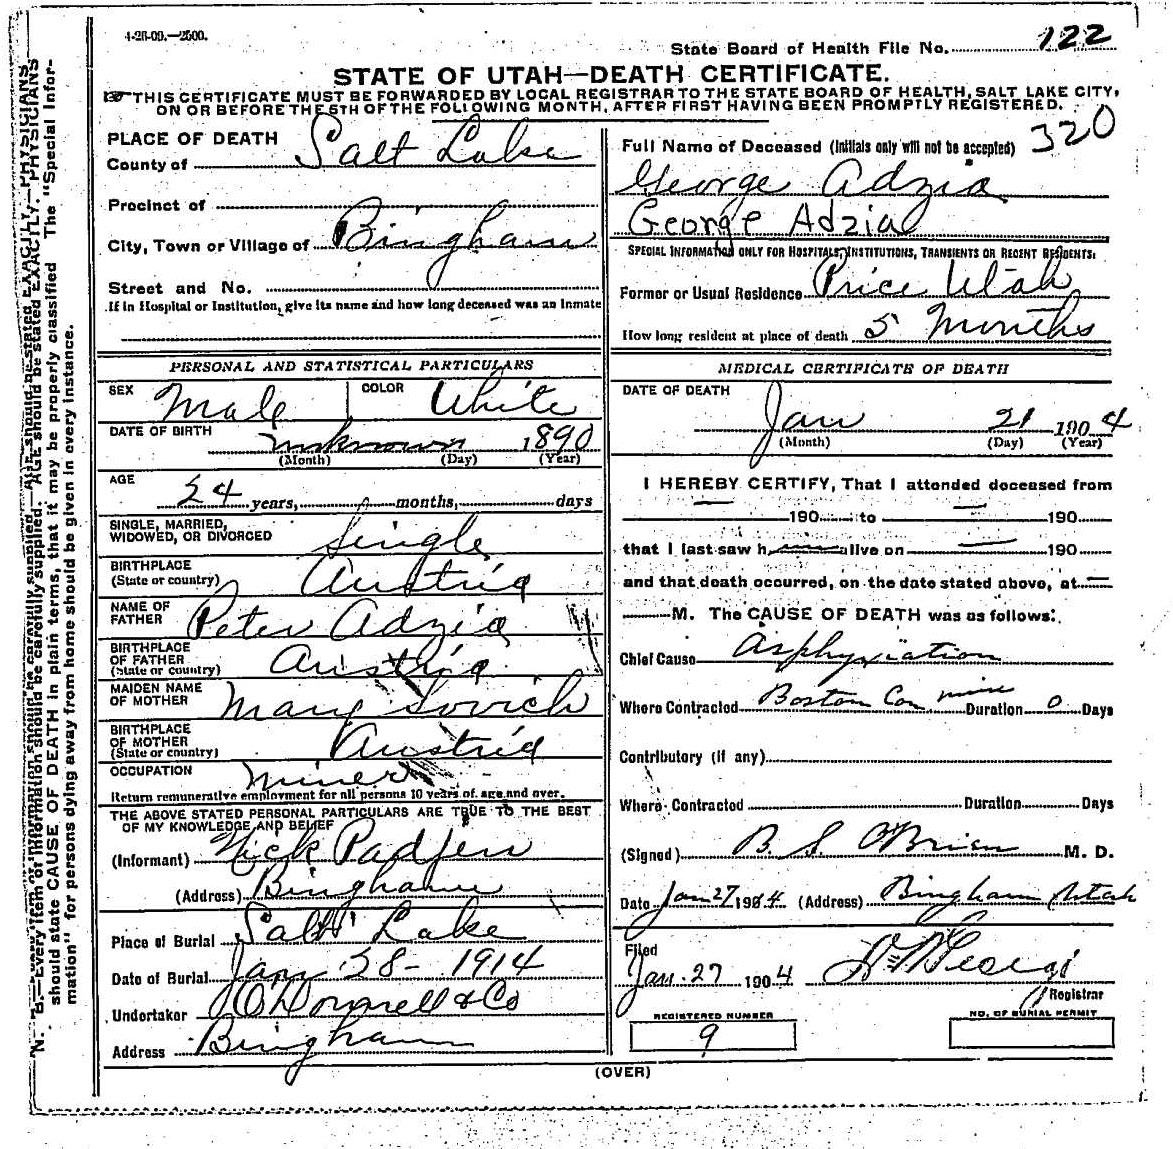 4-28-09.—2500.
State Board of Health File No. 122
STATE OF UTAH—DEATH CERTIFICATE.
THIS CERTIFICATE MUST BE FORWARDED BY LOCAL REGISTRAR TO THE STATE BOARD OF HEALTH, SALT LAKE CITY,
ON OR BEFORE THE 5TH OF THE FOLLOWING MONTH, AFTER FIRST HAVING BEEN PROMPTLY REGISTERED.
320
PLACE OF DEATH
County of Salt Lake
Precinct of
City, Town or Village of Bingham
Street and No.
If in Hospital or Institution, give its name and how long deceased was an inmate
Full Name of Deceased (Initials only will not be accepted)
George Adzia
George Adzia
SPECIAL INFORMATION ONLY FOR HOSPITALS, INSTITUTIONS, TRANSIENTS OR RECENT RESIDENTS:
Former or Usual Residence Price Utah
How long resident at place of death 5 Months
PERSONAL AND STATISTICAL PARTICULARS
SEX Male COLOR White
DATE OF BIRTH unknown 1890
(Month) (Day) (Year)
AGE 24 years, months, days
SINGLE, MARRIED,
WIDOWED, OR DIVORCED Single
BIRTHPLACE
(State or country) Austria
NAME OF
FATHER Peter Adzia
BIRTHPLACE
OF FATHER
(State or country) Austria
MAIDEN NAME
OF MOTHER Mary Sovich
BIRTHPLACE
OF MOTHER
(State or country) Austria
OCCUPATION Miner
Return remunerative employment for all persons 10 years of age and over.
THE ABOVE STATED PERSONAL PARTICULARS ARE TRUE TO THE BEST
OF MY KNOWLEDGE AND BELIEF
(Informant) Nick Padjen
(Address) Bingham
Place of Burial Salt Lake
Date of Burial Jany 28- 1914
Undertaker O'Donnell & Co
Address Bingham
MEDICAL CERTIFICATE OF DEATH
DATE OF DEATH
Jan 21 1904
(Month) (Day) (Year)
I HEREBY CERTIFY, That I attended deceased from
— 190 to — 190
that I last saw h alive on — 190
and that death occurred, on the date stated above, at —
M. The CAUSE OF DEATH was as follows:
Chief Cause Asphyxiation
Where Contracted Boston Con mine Duration 0 Days
Contributory (if any)
Where Contracted Duration Days
(Signed) B. S. O'Brien M. D.
Date Jan 27 1984 (Address) Bingham Utah
Filed
Jan. 27 1904
Registrar
REGISTERED NUMBER
9
NO. OF BURIAL PERMIT
(OVER)
N. B.—Every item of information should be carefully supplied. AGE should be stated EXACTLY. PHYSICIANS
should state CAUSE OF DEATH in plain terms, that it may be properly classified The "Special Infor-
mation" for persons dying away from home should be given in every instance.